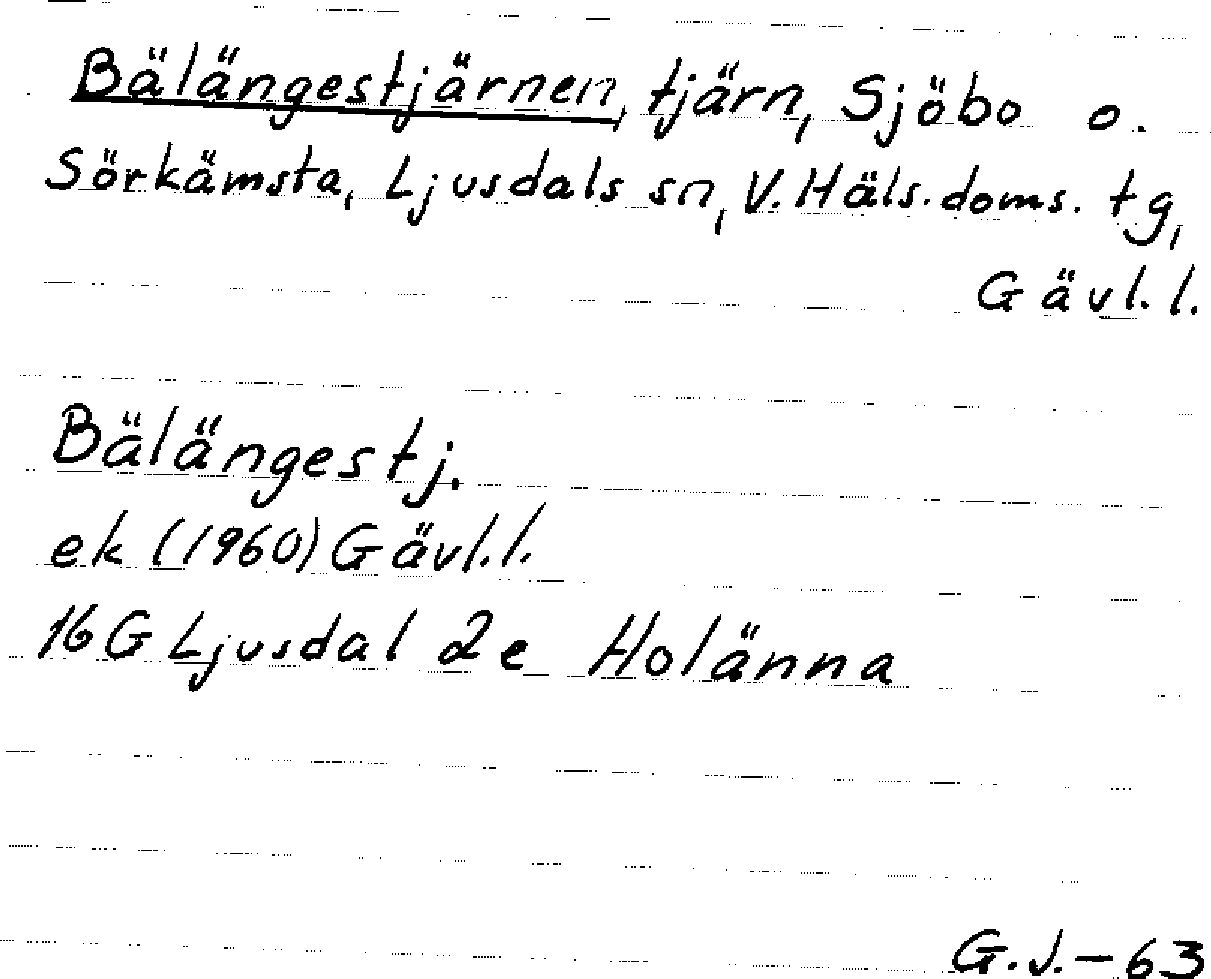 Bälängestjärnen, tjärn, Sjöbo o.
Sörkämsta, Ljusdals sn, V. Häls. doms. tg,
Gävl. l.
Bälängestj.
ek (1960) Gävl. l.
16G Ljusdal 2e Holänna
G.J.-63